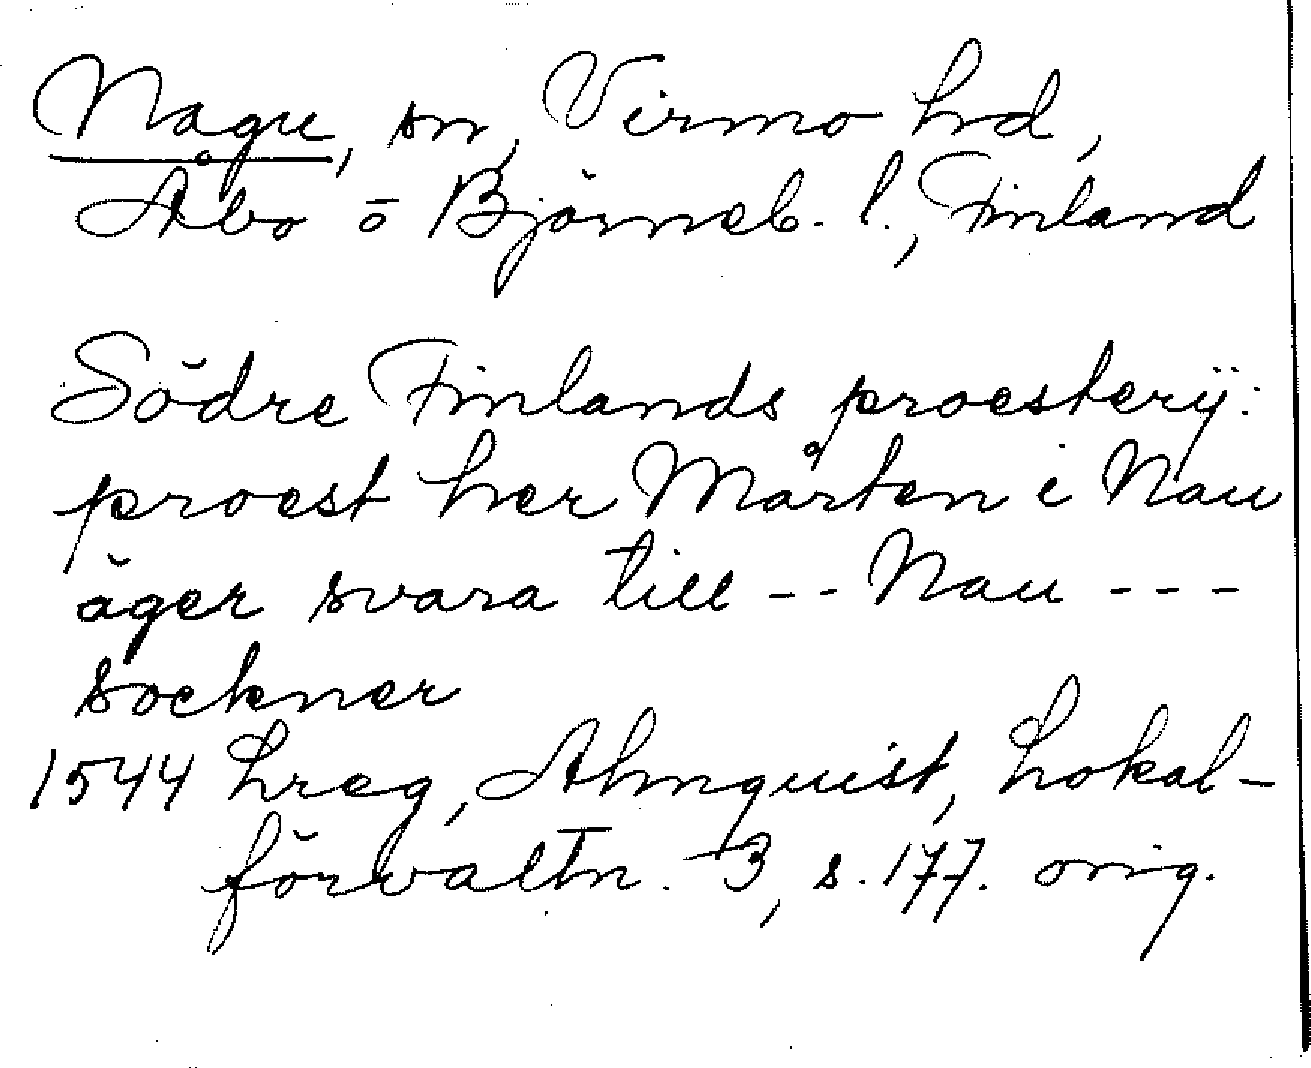 Nagu, sn, Virmo hd,
Åbo o Björneb. l., Finland
Södre Finlands proesterij:
proest her Mårten i Nau
äger svara till -- Nau ---
sockner
1544 Lreg, Almquist, Lokal-
förvaltn. 3, s. 177. orig.